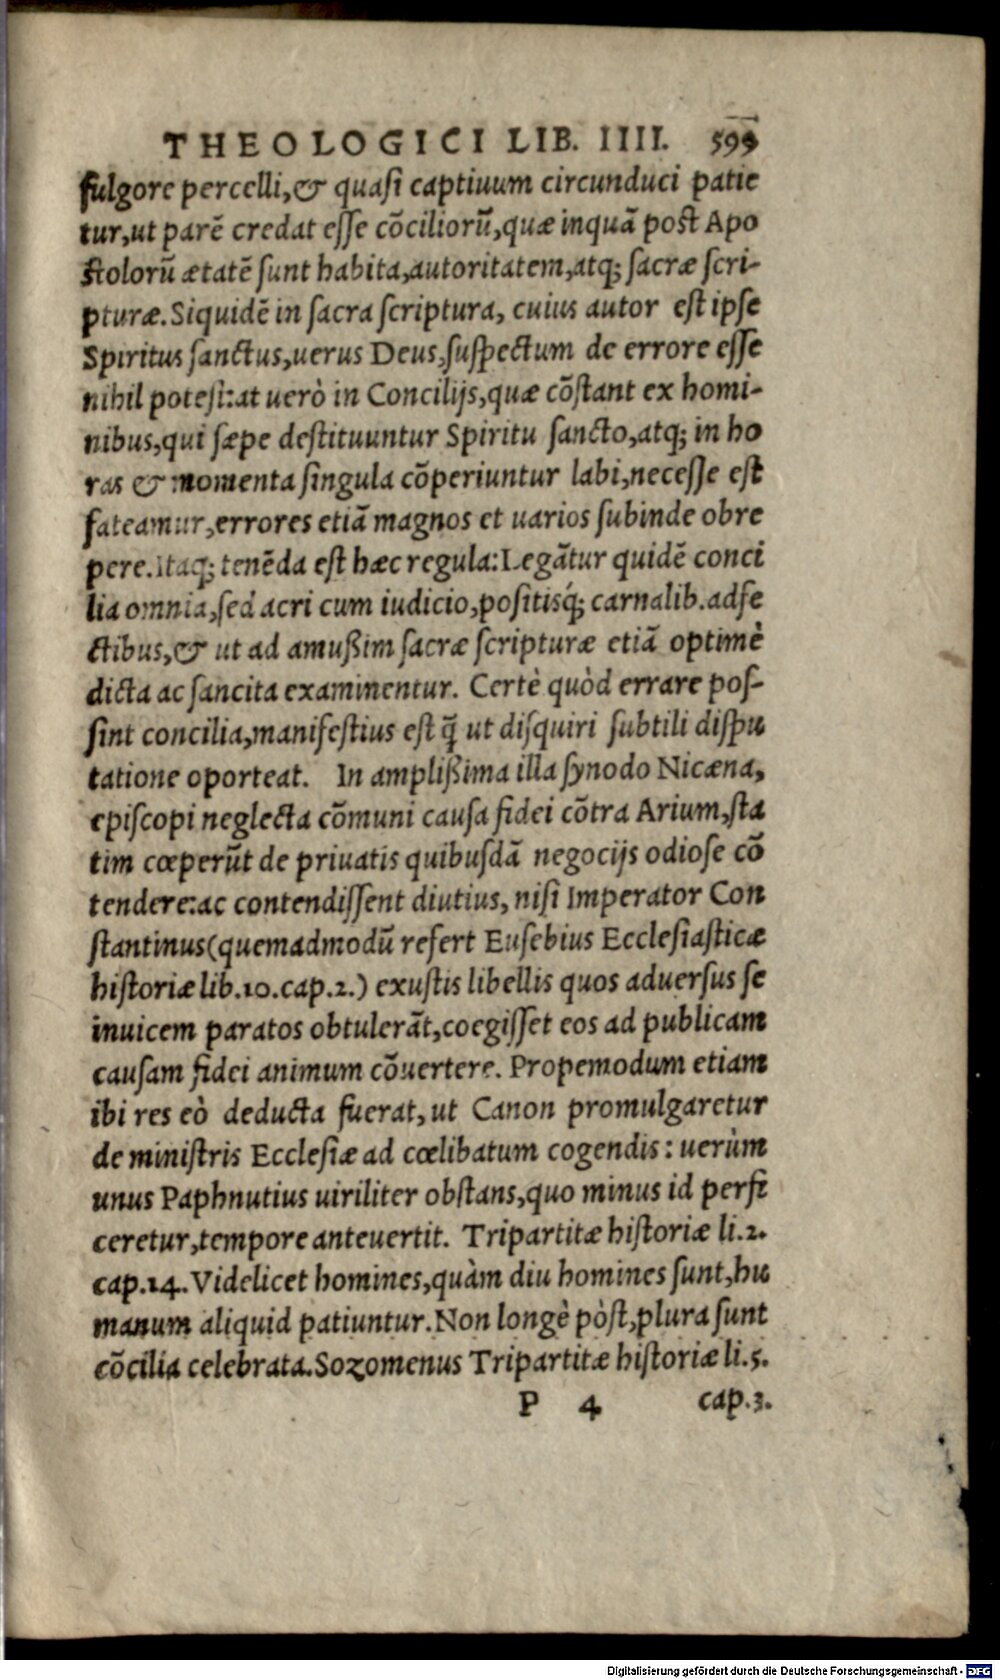 THEOLOGICI LIB. IIII. 599
fulgore percelli,& quasi captiuum circunduci patie
tur,ut parē credat esse cōciliorū,quæ inquā post Apo
stolorū ætatē sunt habita,autoritatem,atq; sacræ scri-
pturæ. Siquidē in sacra scriptura, cuius autor est ipse
Spiritus sanctus,uerus Deus,suspectum de errore esse
nihil potest:at uerò in Concilijs,quæ cōstant ex homi-
nibus,qui sæpe destituuntur Spiritu sancto,atq; in ho
ras & momenta singula cōperiuntur labi,necesse est
fateamur,errores etiā magnos et uarios subinde obre
pere.Itaq; tenēda est hæc regula:Legātur quidē conci
lia omnia,sed acri cum iudicio,positisq́; carnalib.adfe
ctibus,& ut ad amußim sacræ scripturæ etiā optimè
dicta ac sancita examinentur. Certè quòd errare pos-
sint concilia,manifestius est q̄ ut disquiri subtili dispu
tatione oporteat. In amplißima illa synodo Nicæna,
episcopi neglecta cōmuni causa fidei cōtra Arium,sta
tim cœperūt de priuatis quibusdā negocijs odiose cō
tendere:ac contendissent diutius, nisi Imperator Con
stantinus(quemadmodū refert Eusebius Ecclesiasticæ
historiæ lib.10.cap.2.) exustis libellis quos aduersus se
inuicem paratos obtulerāt,coegisset eos ad publicam
causam fidei animum cōuertere. Propemodum etiam
ibi res eò deducta fuerat, ut Canon promulgaretur
de ministris Ecclesiæ ad cœlibatum cogendis : uerùm
unus Paphnutius uiriliter obstans,quo minus id perfi
ceretur,tempore anteuertit. Tripartitæ historiæ li.2.
cap.14. Videlicet homines,quàm diu homines sunt,hu
manum aliquid patiuntur. Non longè pòst,plura sunt
cōcilia celebrata. Sozomenus Tripartitæ historiæ li.5.
P 4 cap.3.
Digitalisierung gefördert durch die Deutsche Forschungsgemeinschaft - DFG